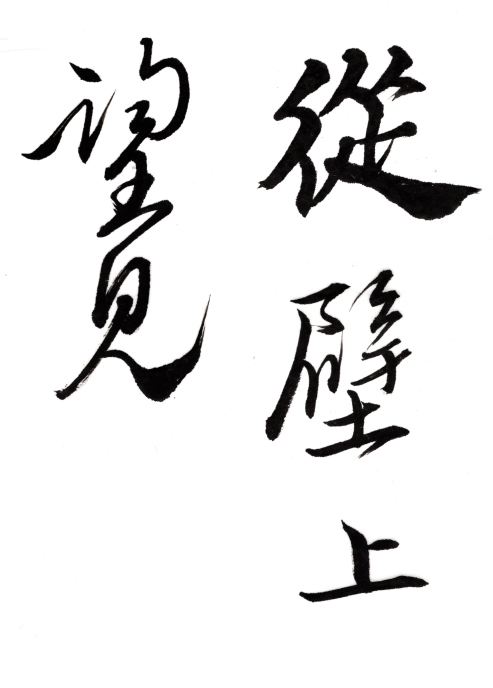 從壁上
望見